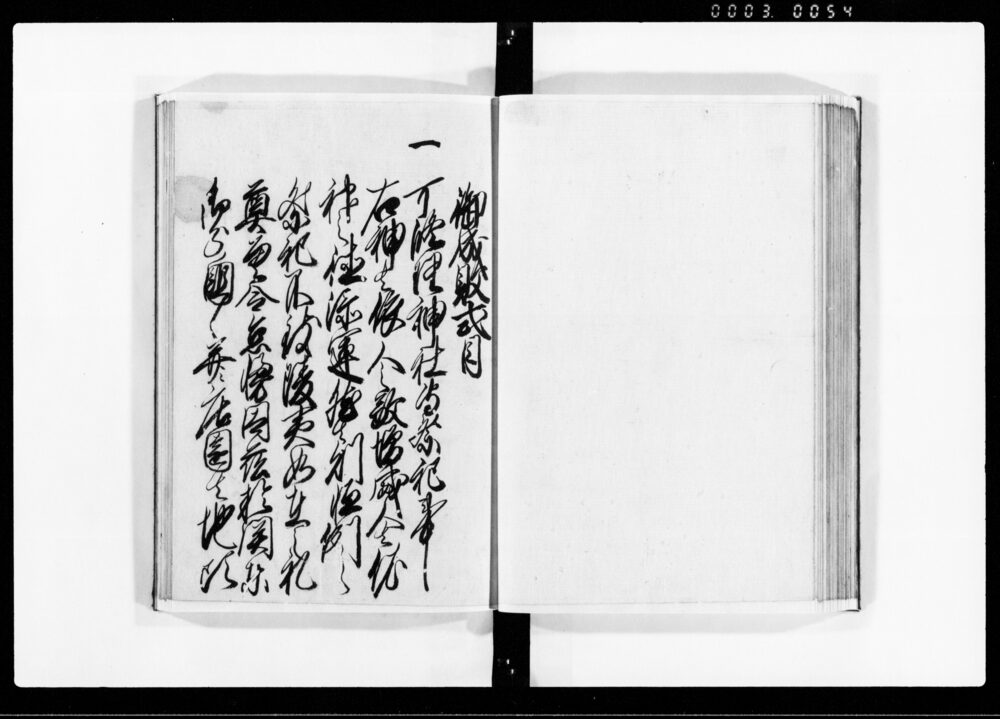 0003. 0054
御成敗式目
一 可修理神社専祭祀事
右神者依人之敬増威人者依
神之徳添運然者則恒例之
祭祀不致陵夷如在之礼
奠莫令怠慢因茲於関東
御分国々并庄園者地頭